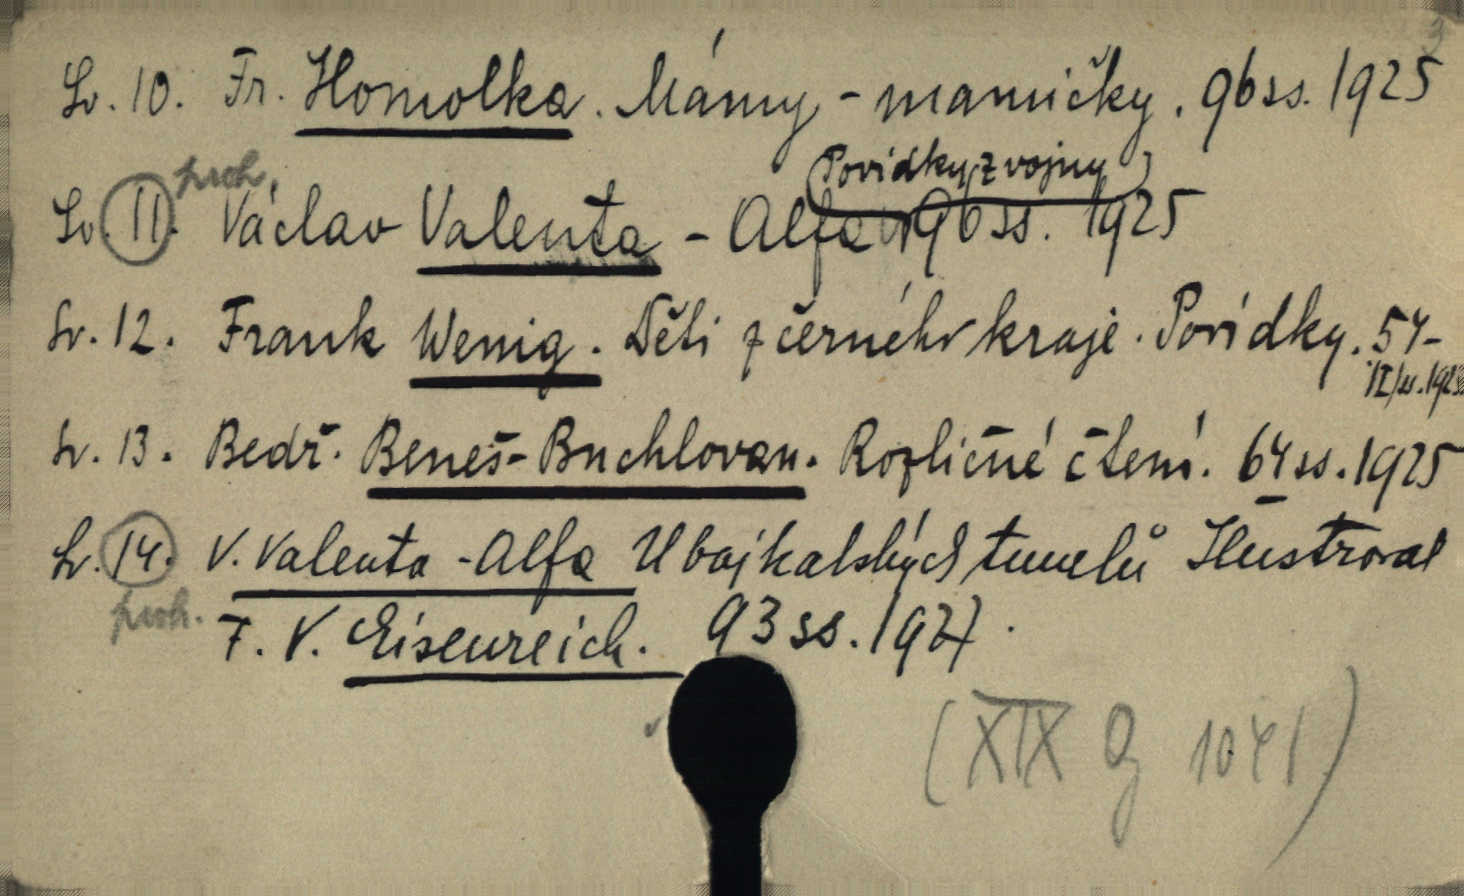 3
Sv. 10. Fr. Homolka. Mámy - mamičky. 96 ss. 1925
proh.
(Povídky z vojny)
Sv. 11. Václav Valenta - Alfa 96 ss. 1925
Sv. 12. Frank Wenig. Děti z černého kraje. Povídky. 54-
Sv. 13. Bedř. Beneš-Buchlovan. Rozličné čtení. 64 ss. 1925
Sv. 14. V. Valenta - Alfa U bajkalských tunelů Ilustroval
proh. F. V. Eisenreich. 93 ss. 1927.
(XIX G 1041)